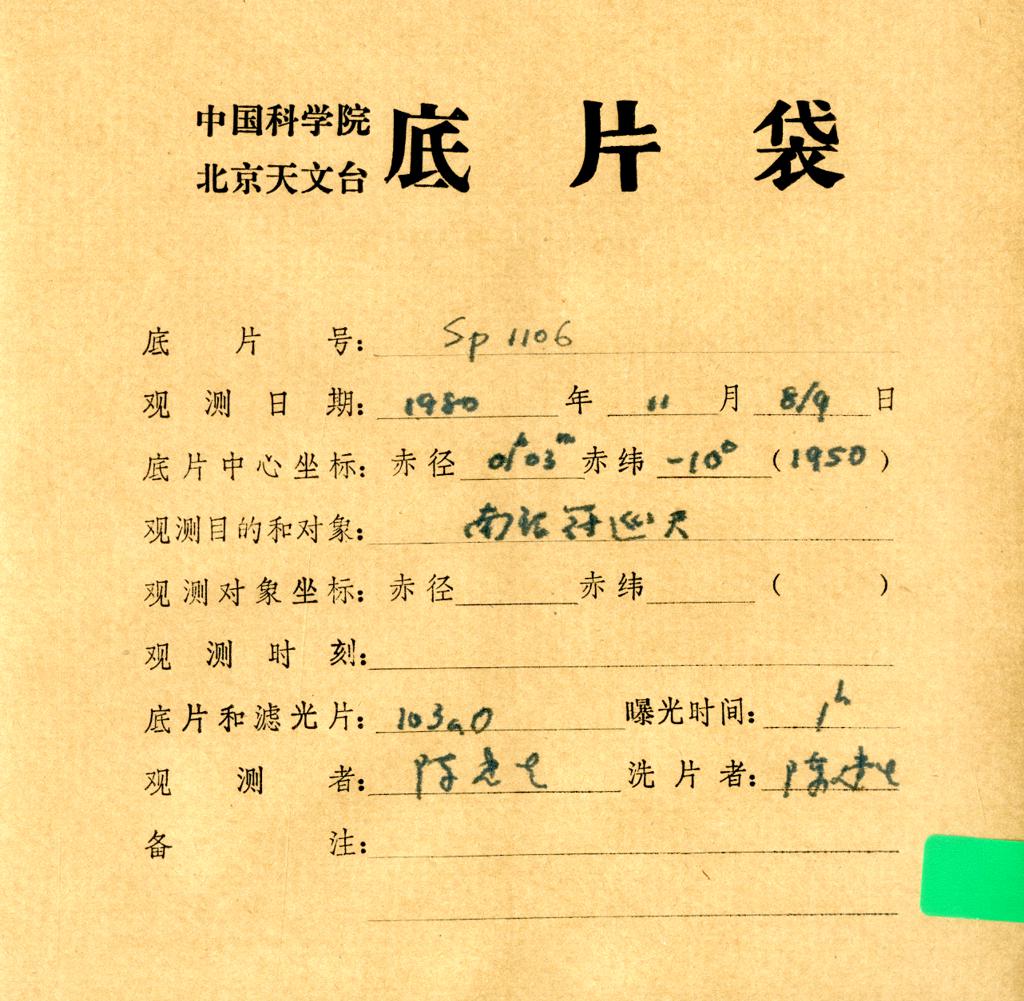 中国科学院
北京天文台
底片袋
底片号: Sp 1106
观测日期: 1980 年 11 月 8/9 日
底片中心坐标: 赤径 01ʰ03ᵐ 赤纬 -10° (1950)
观测目的和对象: 南 巡天
观测对象坐标: 赤径 赤纬 ( )
观测时刻:
底片和滤光片: 103aO 曝光时间: 1ʰ
观测者: 陈 洗片者: 陈
备注: